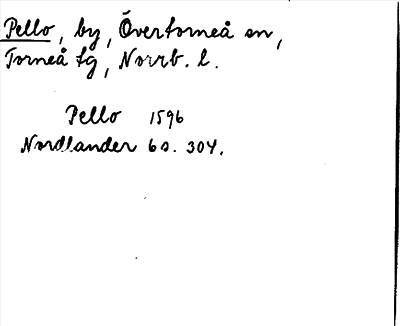 Pello, by, Övertorneå sn,
Torneå tg, Norrb. l.
Pello 1596
Nordlander 6 s. 304.